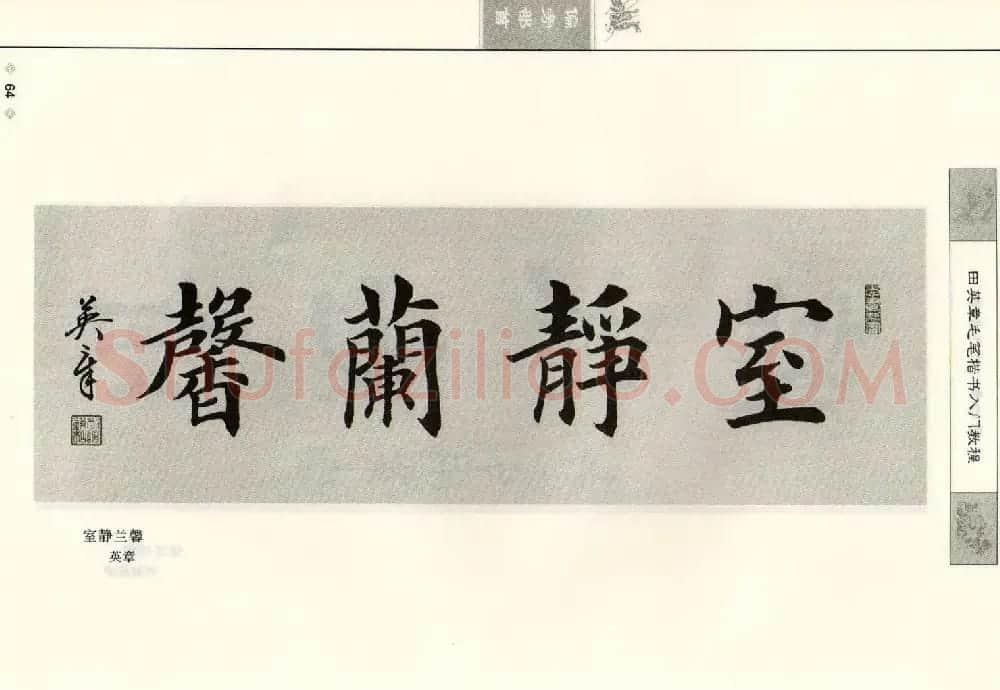 64
室靜蘭馨
英章
Shufaziliao.COM
室静兰馨
英章
田英章毛笔楷书入门教程